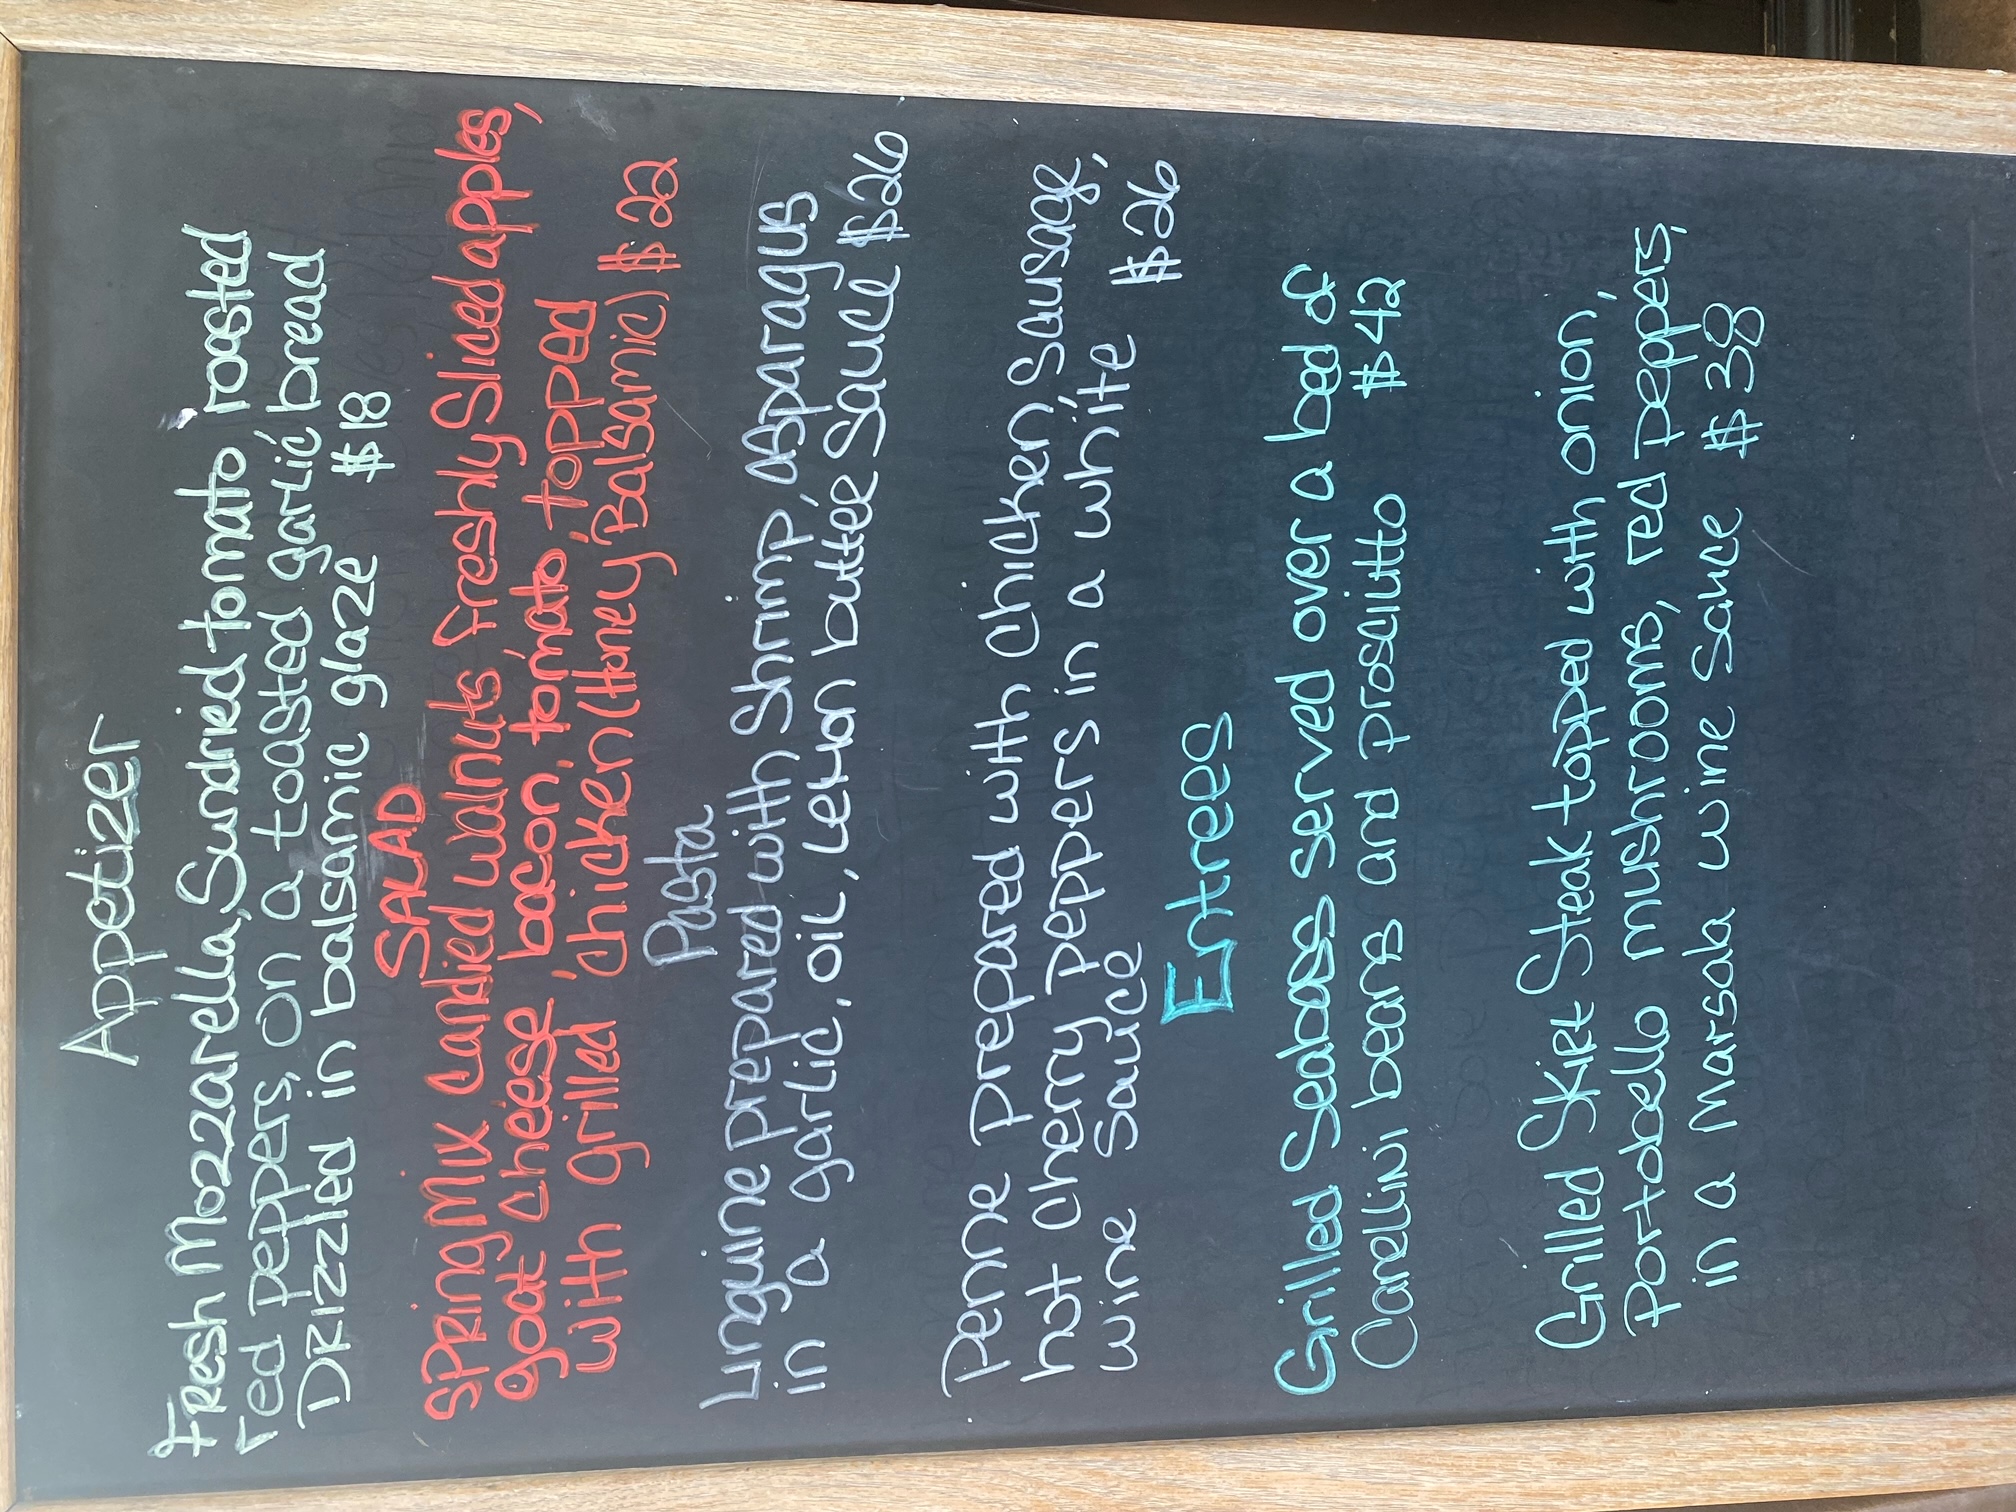 Appetizer
Fresh Mozzarella, Sundried tomato roasted
red peppers, on a toasted garlic bread
Drizzled in balsamic glaze $18
SALAD
Spring Mix candied walnuts freshly Sliced apples,
goat cheese, bacon, tomato, topped
with grilled chicken (Honey Balsamic) $22
Pasta
Linguine prepared with Shrimp, asparagus
in a garlic, oil, lemon butter sauce $26
Penne prepared with chicken Sausage,
hot cherry peppers in a white
wine Sauce $26
Entrees
Grilled Seabass served over a bed of
Canellini beans and prosciutto $42
Grilled Skirt Steak topped with onion,
Portobello mushrooms, red peppers,
in a Marsala wine sauce $38